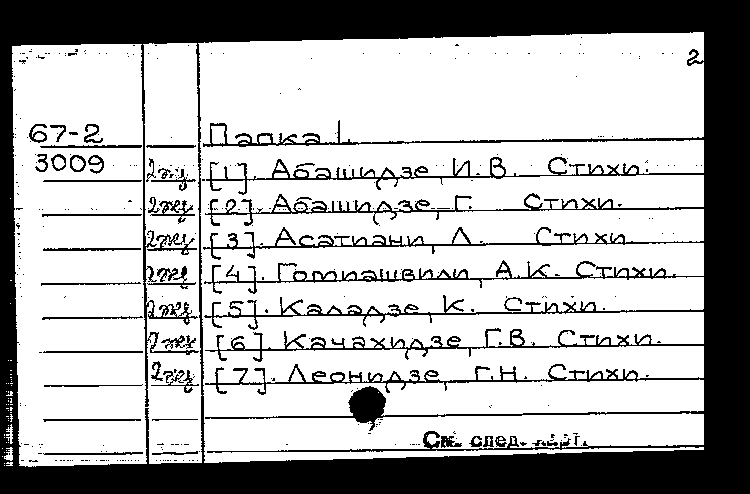 2
67-2 Папка 1.
3009 2 экз [1]. Абашидзе, И.В. Стихи.
2 экз [2]. Абашидзе, Г. Стихи.
2 экз [3]. Асатиани, Л. Стихи.
2 экз [4]. Гомиашвили, А.К. Стихи.
2 экз [5]. Каладзе, К. Стихи.
2 экз [6]. Качахидзе, Г.В. Стихи.
2 экз [7]. Леонидзе, Г.Н. Стихи.
См. след. карт.